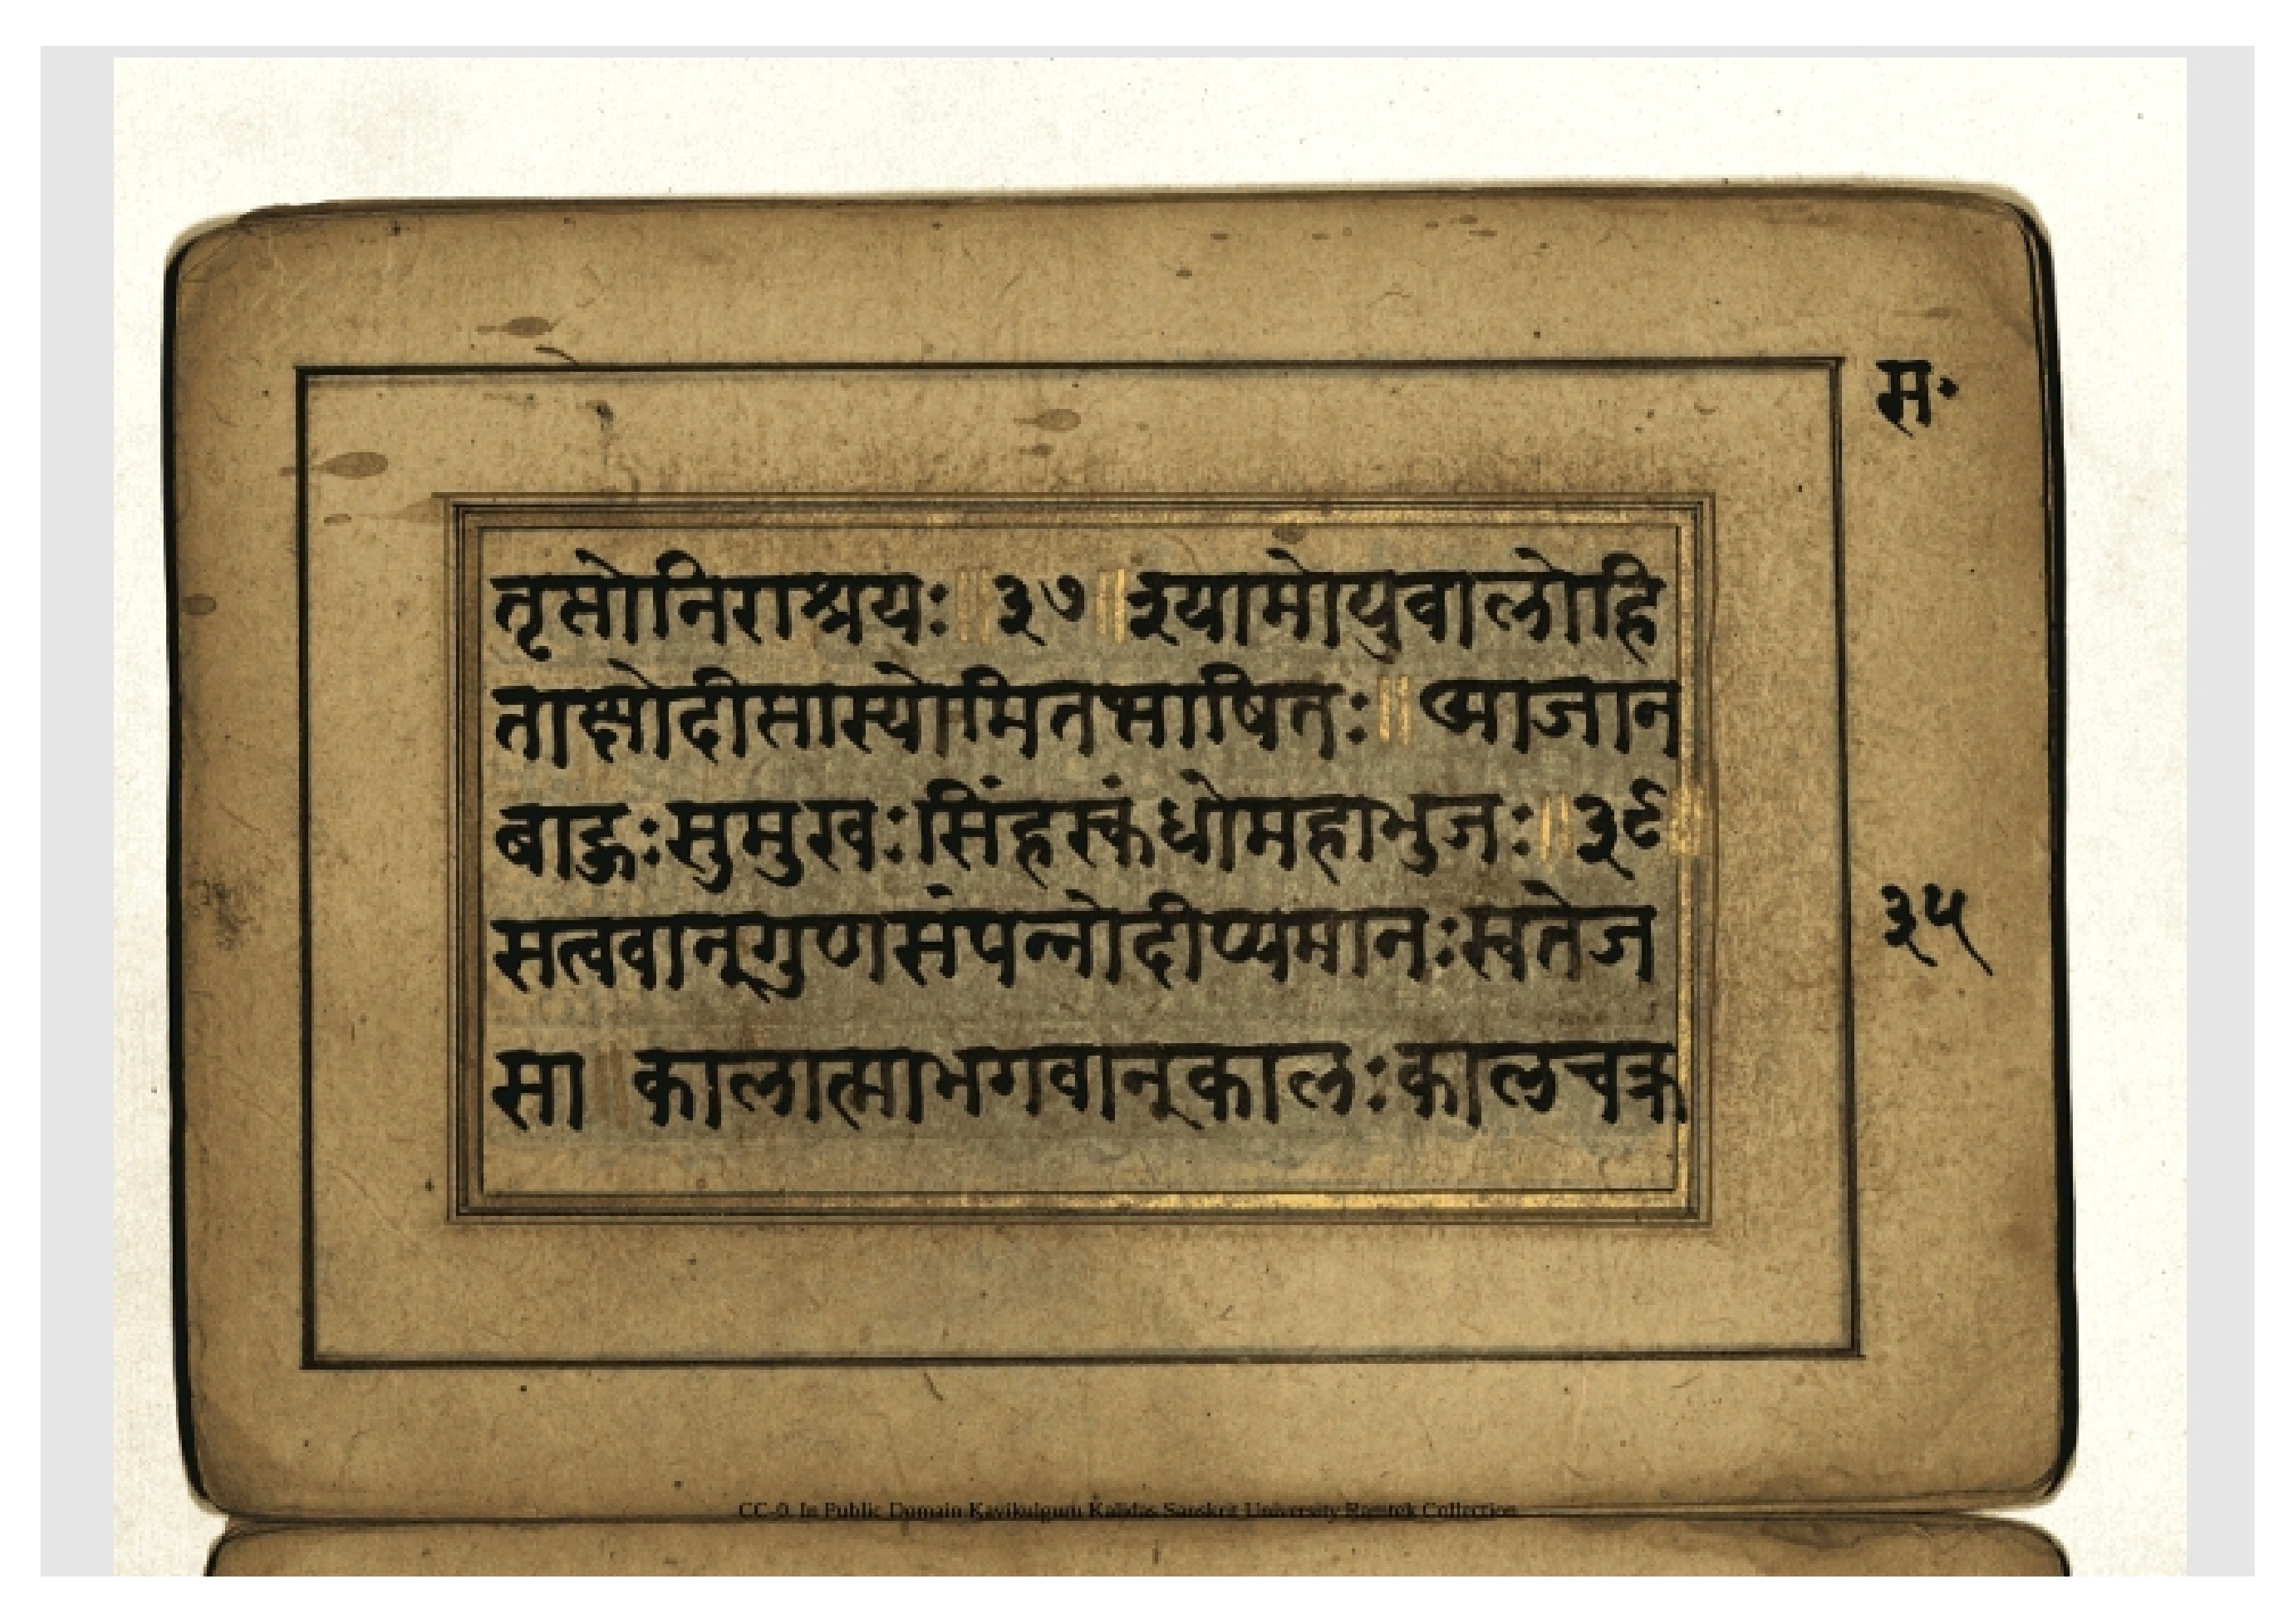 स॰
तृप्तोनिराश्रयः॥३७॥श्यामोयुवालोहि
ताक्षोदीप्तास्योमितभाषितः॥आजान
बाहुःसुमुखःसिंहस्कंधोमहाभुजः॥३९
सत्ववान्गुणसंपन्नोदीप्यमानःस्वतेज
सा॥कालात्माभगवान्कालःकालचक्र
३५
CC-0. In Public Domain Kavikulguru Kalidas Sanskrit University Ramtek Collection